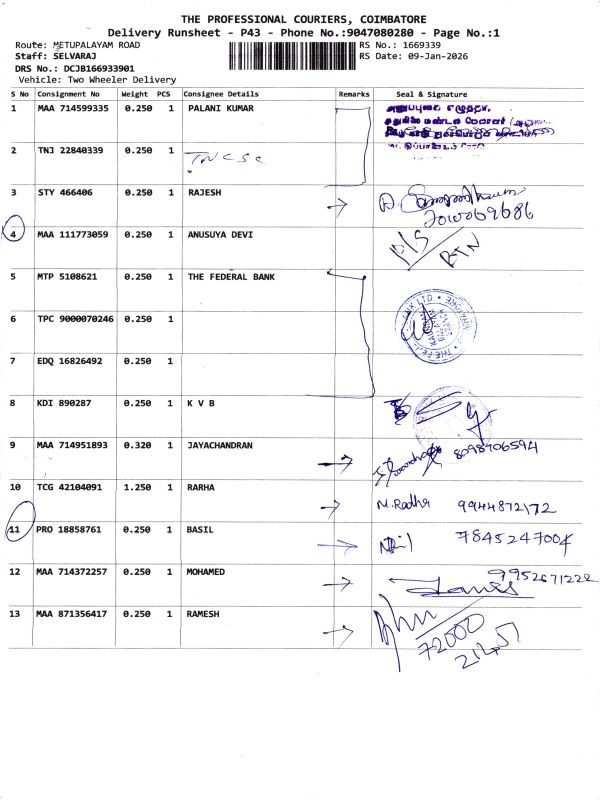 THE PROFESSIONAL COURIERS, COIMBATORE
Delivery Runsheet - P43 - Phone No.:9047080280 - Page No.:1
Route: METUPALAYAM ROAD
RS No.: 1669339
Staff: SELVARAJ
RS Date: 09-Jan-2026
DRS No.: DCJB166933901
Vehicle: Two Wheeler Delivery
S No Consignment No Weight PCS Consignee Details Remarks Seal & Signature
1 MAA 714599335 0.250 1 PALANI KUMAR
2 TNJ 22840339 0.250 1 TNCSC
3 STY 466406 0.250 1 RAJESH
4 MAA 111773059 0.250 1 ANUSUYA DEVI RTN
5 MTP 5108621 0.250 1 THE FEDERAL BANK
6 TPC 9000070246 0.250 1
7 EDQ 16826492 0.250 1
8 KDI 890287 0.250 1 K V B
9 MAA 714951893 0.320 1 JAYACHANDRAN 8098706594
10 TCG 42104091 1.250 1 RARHA M.Radha 9944872172
11 PRO 18858761 0.250 1 BASIL 7845247004
12 MAA 714372257 0.250 1 MOHAMED 9952671222
13 MAA 871356417 0.250 1 RAMESH 72000
21451